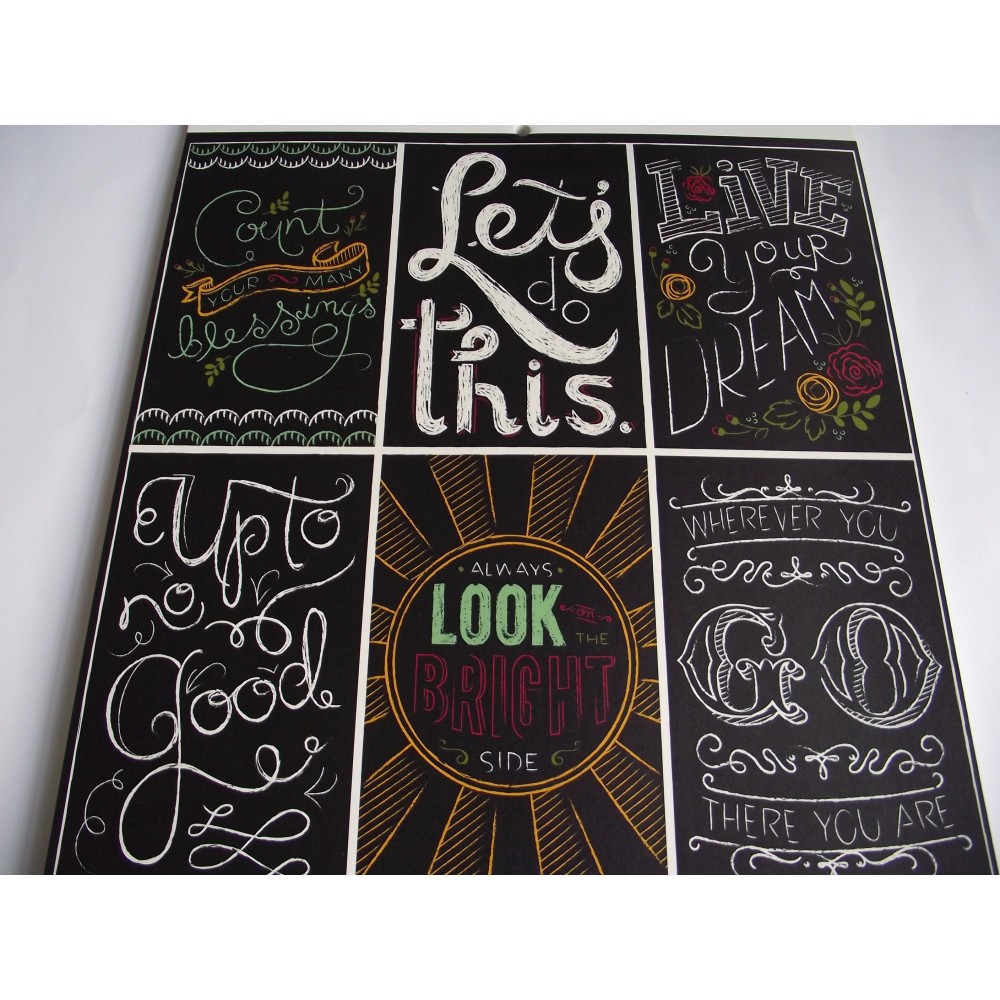 Count
YOUR MANY
blessings
Let's
do
this.
LiVE
your
DREAM
Up to
no
good
ALWAYS
LOOK on
THE
BRIGHT
SIDE
WHEREVER YOU
GO
THERE YOU ARE